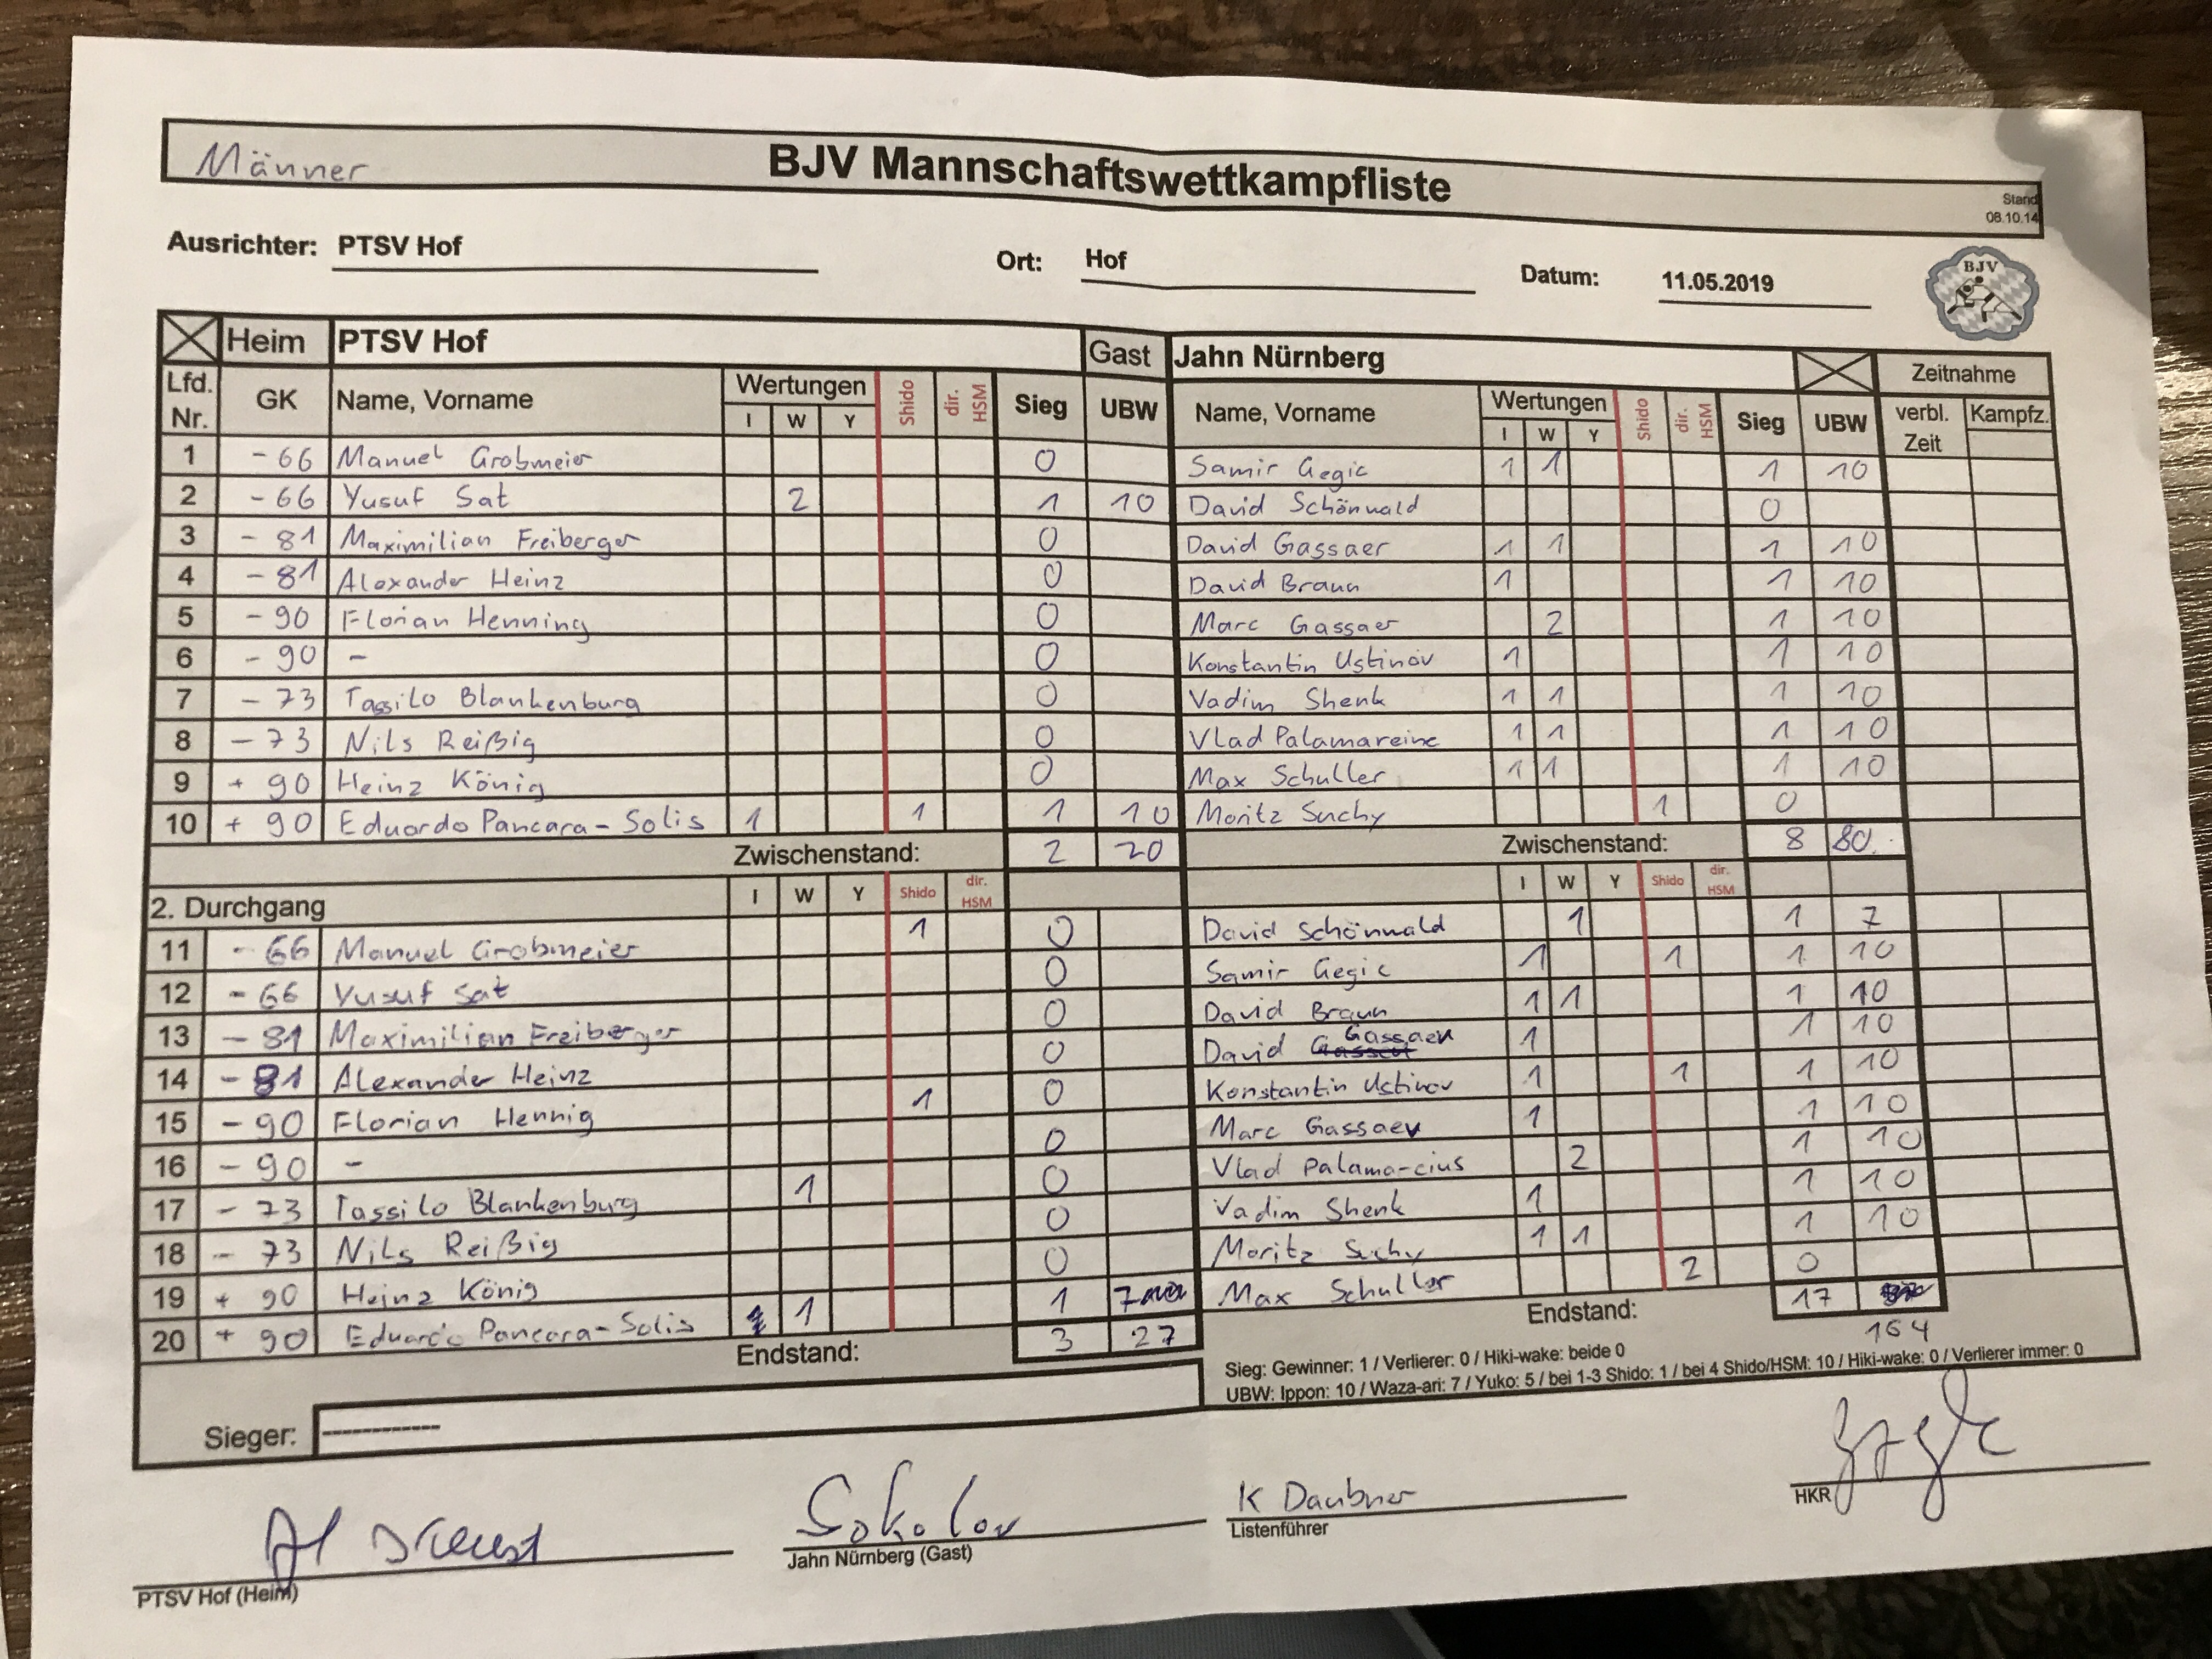 Männer
BJV Mannschaftswettkampfliste
Stand
08.10.14
Ausrichter: PTSV Hof Ort: Hof Datum: 11.05.2019
BJV
Heim PTSV Hof Gast Jahn Nürnberg Zeitnahme
Lfd. Nr. GK Name, Vorname Wertungen I W Y Shido dir. HSM Sieg UBW Name, Vorname Wertungen I W Y Shido dir. HSM Sieg UBW verbl. Zeit Kampfz.
1 - 66 Manuel Grobmeier 0 Samir Gegic 1 1 1 10
2 - 66 Yusuf Sat 2 1 10 David Schönwald 0
3 - 81 Maximilian Freiberger 0 David Gassaer 1 1 1 10
4 - 81 Alexander Heinz 0 David Braun 1 1 10
5 - 90 Florian Henning 0 Marc Gassaer 2 1 10
6 - 90 - 0 Konstantin Ustinov 1 1 10
7 - 73 Tassilo Blankenburg 0 Vadim Shenk 1 1 1 10
8 - 73 Nils Reißig 0 Vlad Palamareine 1 1 1 10
9 + 90 Heinz König 0 Max Schuller 1 1 1 10
10 + 90 Eduardo Pancara-Solis 1 1 1 10 Moritz Suchy 1 0
Zwischenstand: 2 20 Zwischenstand: 8 80
2. Durchgang I W Y Shido dir. HSM I W Y Shido dir. HSM
11 - 66 Manuel Grobmeier 1 0 David Schönwald 1 1 7
12 - 66 Yusuf Sat 0 Samir Gegic 1 1 1 10
13 - 81 Maximilian Freiberger 0 David Braun 1 1 1 10
14 - 81 Alexander Heinz 0 David Gassaev 1 1 10
15 - 90 Florian Hennig 1 0 Konstantin Ustinov 1 1 1 10
16 - 90 - 0 Marc Gassaev 1 1 10
17 - 73 Tassilo Blankenburg 1 0 Vlad Palama-cius 2 1 10
18 - 73 Nils Reißig 0 Vadim Shenk 1 1 10
19 + 90 Heinz König 0 Moritz Suchy 1 1 1 10
20 + 90 Eduardo Pancara-Solis 1 1 7 Max Schuller 2 0
Endstand: 3 27 Endstand: 17
164
Sieg: Gewinner: 1 / Verlierer: 0 / Hiki-wake: beide 0
UBW: Ippon: 10 / Waza-ari: 7 / Yuko: 5 / bei 1-3 Shido: 1 / bei 4 Shido/HSM: 10 / Hiki-wake: 0 / Verlierer immer: 0
Sieger: ------------
Sokolov K Daubner
PTSV Hof (Heim) Jahn Nürnberg (Gast) Listenführer HKR